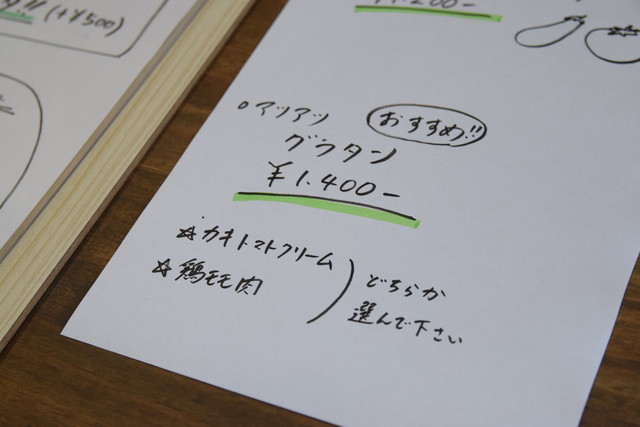 (+¥500)
¥1.200-
○アツアツ おすすめ!!
グラタン
¥1.400-
☆カキトマトクリーム
☆鶏モモ肉
どちらか
選んで下さい